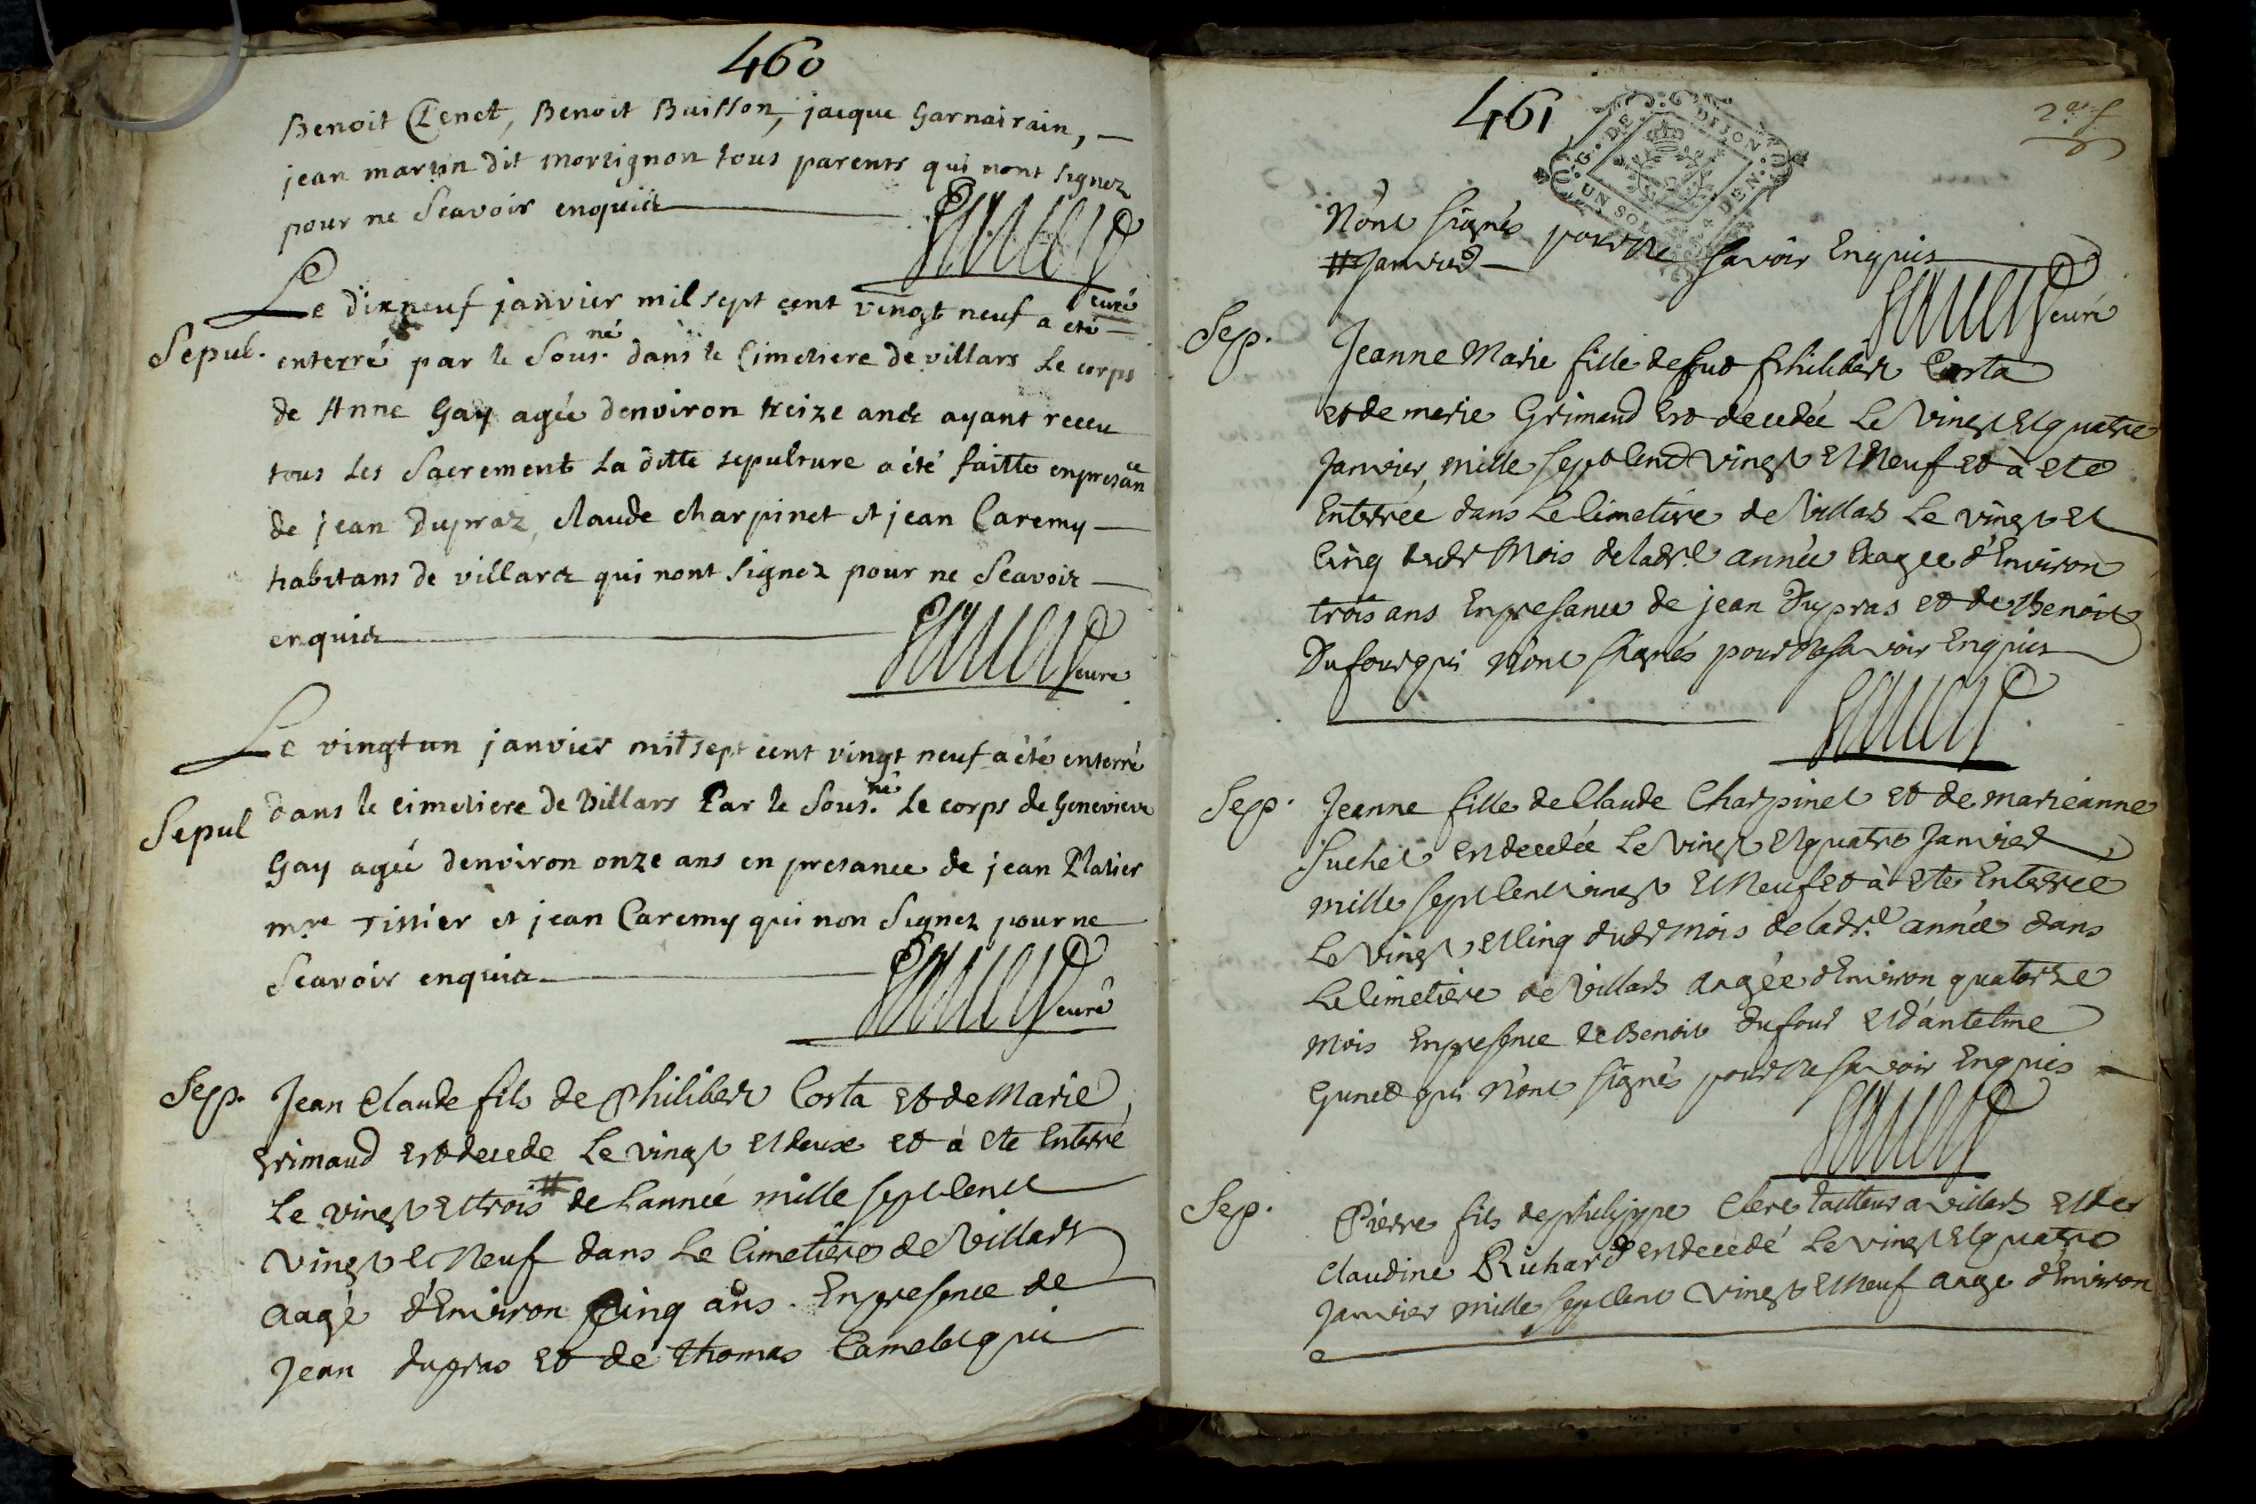 460
Benoit Clenet, Benoit Buisson, jacque Garnairain,
jean martin dit morsignon tous parents qui nont signez
pour ne Scavoir enquis
curé
Le dixneuf janvier mil sept cent vingt neuf a eté
Sepul. enterré par le Sous.né dans le Cimetiere de villars Le corps
de Anne Gay agée denviron treize ans ayant receu
tous les Sacrement La ditte sepulture a été faitte enpresance
de jean Dupraz, claude charpinet et jean Caremy
habitans de villars qui nont signez pour ne Scavoir
enquis
curé
Le vingtun janvier mil sept cent vingt neuf a été enterré
Sepul dans le cimetiere de Villars Par le Sous.né Le corps de Genevieve
Gay agée denviron onze ans en presance de jean Platier
mre Tissier et jean Caremy qui non Signez pour ne
Scavoir enquis
curé
Sep. Jean Claude fils de Philibert Costa et de Marie
Grimaud est decede Le vingt et deux et à ete Enterré
Le vingt et trois # de Lannée mille sept Cent
vingt et Neuf dans Le Cimetière de Villars
aagé d'Environ Cinq ans. Enpresence de
Jean dupras et de thomas qui
461
G. DE DIJON
UN SOL DEN.
N'ont signés pour Ne savoir Enquis
# Janvier
curé
Sep. Jeanne Marie fille de feut philibert Costa
et de marie Grimaud est decedée Le vingt et quatre
Janvier mille sept Cent vingt et Neuf et à ete
Enterrée dans Le Cimetière de Villars Le vingt et
Cinq dudt Mois de ladt.e année Eaagee d'Environ
trois ans Enpresance de jean Dupras et de Benoit
Dufour qui N'ont signés pour Ne savoir Enquis
Sep. Jeanne fille de Claude Charpinet et de marieanne
Suchet est decedée Le vingt et quatre Janvier
mille sept Cent vingt et Neuf et à ete Enterree
Le vingt et Cinq dudt mois de ladt.e année dans
Le Cimetière de Villars aagée d'Environ quatorze
Mois Enpresence de Benoit Dufour et d'antelme
qui N'ont signés pour Ne savoir Enquis
Sep. Pierre fils de philippe Clere tailleur a villars et de
Claudine Richard est decedé Le vingt et quatre
Janvier mille sept Cent vingt et Neuf aage d'Environ